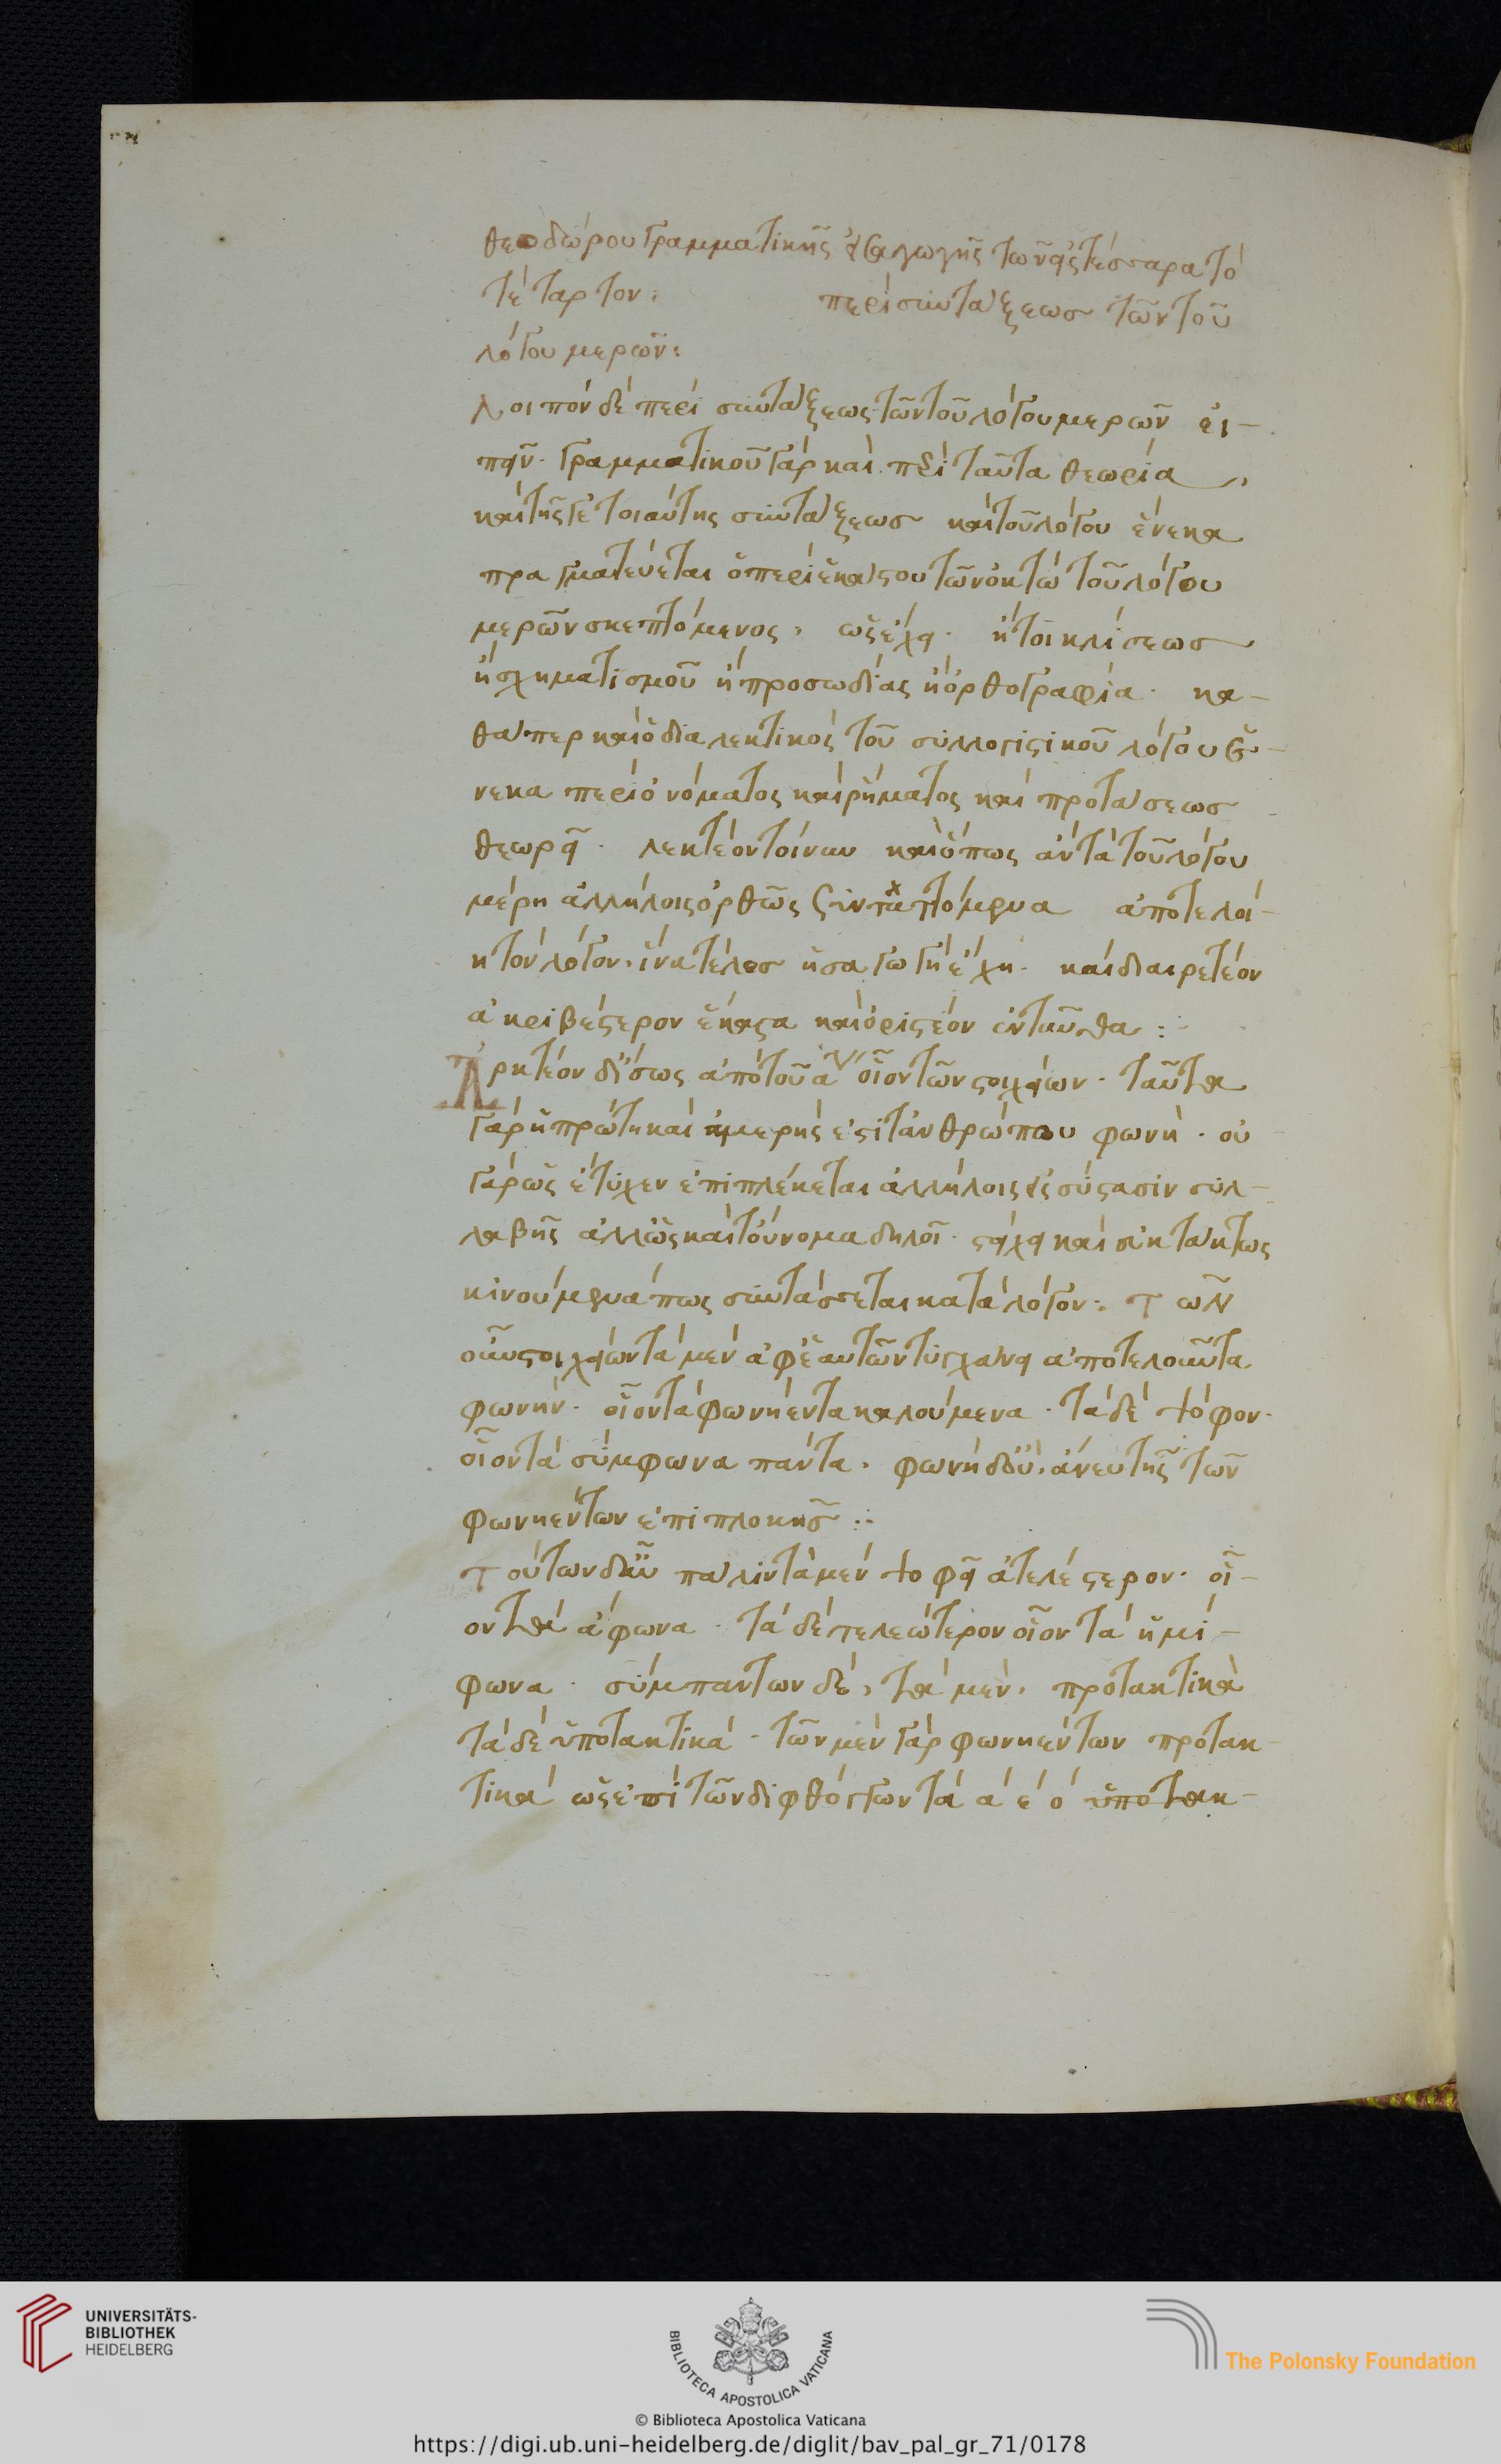 θεοδώρου γραμματικῆς εἰσαγωγῆς τῶν εἰς τέσσαρα τὸ
τέταρτον: περὶ συντάξεως τῶν τοῦ
λόγου μερῶν:
Λοιπὸν δὲ περὶ συντάξεως τῶν τοῦ λόγου μερῶν εἰ-
πεῖν. γραμματικοῦ γὰρ καὶ περὶ ταῦτα θεωρία,
καὶ τῆς γε τοιαύτης συντάξεως καὶ τοῦ λόγου ἕνεκα
πραγματεύεται ὁ περὶ ἑκάστου τῶν ὀκτὼ τοῦ λόγου
μερῶν σκεπτόμενος, ὡς ἔχει. ἤτοι κλίσεως
ἢ σχηματισμοῦ ἢ προσωδίας ἢ ὀρθογραφία. κα-
θάπερ καὶ ὁ διαλεκτικὸς τοῦ συλλογιστικοῦ λόγου ἕ-
νεκα περὶ ὀνόματος καὶ ῥήματος καὶ προτάσεως
θεωρεῖ. λεκτέον τοίνυν καὶ ὅπως ἂν τὰ τοῦ λόγου
μέρη ἀλλήλοις ὀρθῶς συνταττόμενα ἀποτελοί-
η τὸν λόγον, ἵνα τέλεος ἡ εἰσαγωγὴ ἔχη. καὶ διαιρετέον
ἀκριβέστερον ἕκαστα καὶ ὁριστέον ἐνταῦθα:
Ἀρκτέον δ' ἴσως ἀπὸ τοῦ α οἷον τῶν στοιχείων. ταῦτα
γὰρ ἡ πρώτη καὶ ἀμερής ἐστι τἀνθρώπου φωνή. οὐ
γὰρ ὡς ἔτυχεν ἐπιπλέκεται ἀλλήλοις εἰς σύστασιν συλ-
λαβῆς ἀλλ' ὡς καὶ τοὔνομα δηλοῖ. στείχει καὶ εὐκτάκτως
κινούμενα πως συντάσσεται κατὰ λόγον: τῶν
οὖν στοιχείων τὰ μὲν ἀφ' ἑαυτῶν τυγχάνει ἀποτελοῦντα
φωνήν. οἷον τὰ φωνήεντα καλούμενα. τὰ δὲ ψόφον.
οἷον τὰ σύμφωνα πάντα. φωνὴ δ' οὔ. ἄνευ τῆς τῶν
φωνηέντων ἐπιπλοκῆς:
τούτων δ' αὖ πάλιν τὰ μὲν ψοφεῖ ἀτελέστερον. οἷ-
ον τὰ ἄφωνα. τὰ δὲ τελεώτερον οἷον τὰ ἡμί-
φωνα. σύμπάντων δὲ, τὰ μὲν, προτακτικὰ
τὰ δὲ ὑποτακτικά. τῶν μὲν γὰρ φωνηέντων προτακ-
τικὰ ὡς ἐπὶ τῶν διφθόγγων τὰ α ε ο ὑποτακ-
UNIVERSITÄTS-
BIBLIOTHEK
HEIDELBERG
BIBLIOTECA APOSTOLICA VATICANA
The Polonsky Foundation
© Biblioteca Apostolica Vaticana
https://digi.ub.uni-heidelberg.de/diglit/bav_pal_gr_71/0178